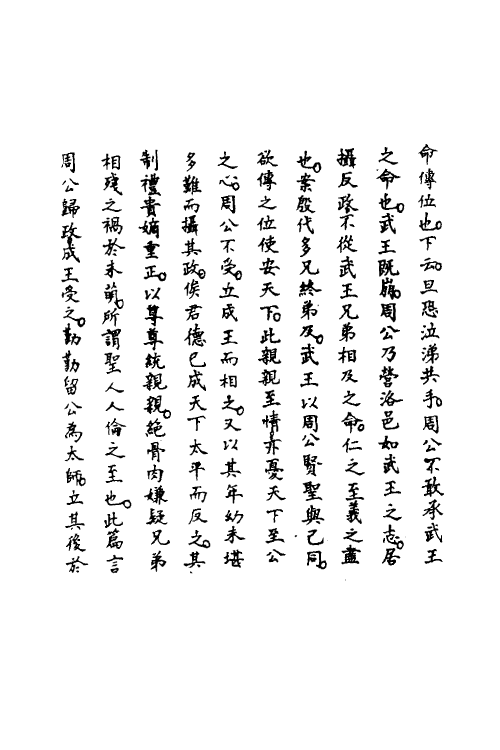 命傳位也。下云。旦恐泣涕共手。周公不敢承武王
之命也。武王既崩。周公乃營洛邑如武王之志。居
攝反政不從武王兄弟相及之命。仁之至義之盡
也。案殷代多兄終弟及。武王以周公賢聖與己同。
欲傳之位使安天下。此親親至情亦憂天下至公
之心。周公不受。立成王而相之。又以其年幼未堪
多難而攝其政。俟君德已成天下太平而反之。其
制禮貴嫡重正。以尊尊統親親。絕骨肉嫌疑兄弟
相殘之禍於未萌。所謂聖人人倫之至也。此篇言
周公歸政成王受之。勤勤留公為太師。立其後於